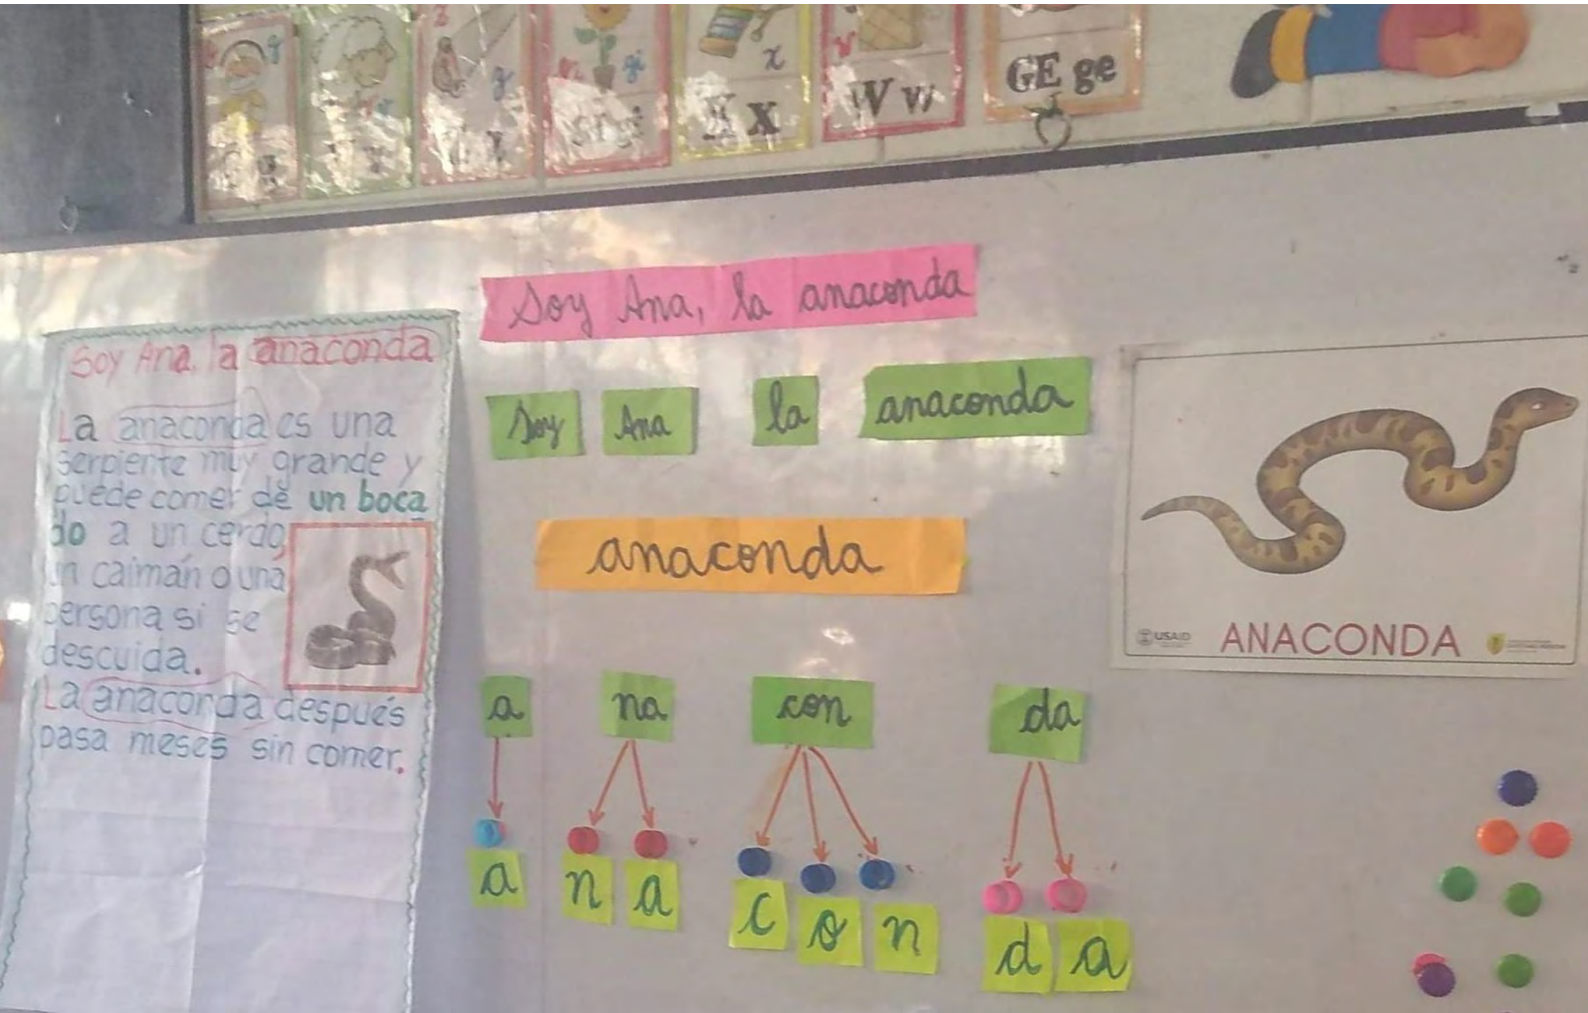 x
X x
W w
GE ge
Soy Ana, la anaconda
La anaconda es una
serpiente muy grande y
puede comer de un boca
do a un cerdo,
un caimán o una
persona si se
descuida.
La anaconda después
pasa meses sin comer.
Soy Ana, la anaconda
Soy Ana la anaconda
anaconda
a na con da
a n a c o n d a
USAID
ANACONDA